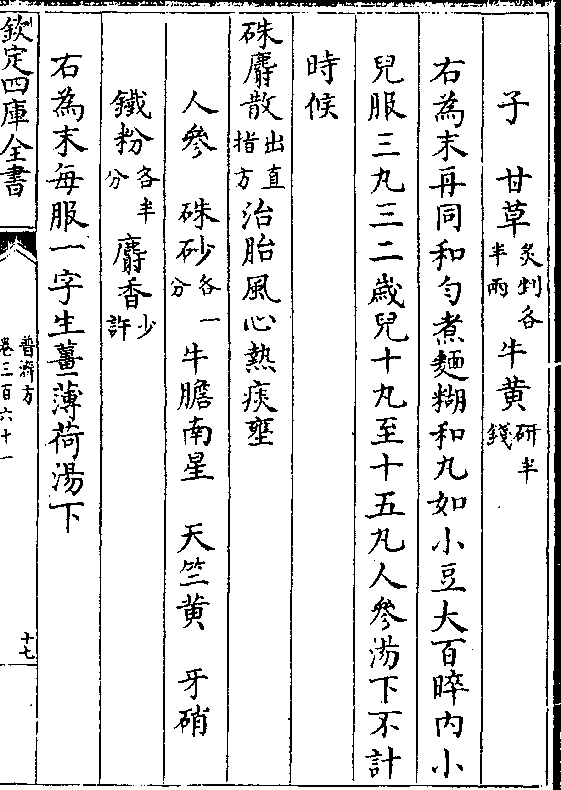 子　甘草炙剉各半兩　牛黄研半錢
右為末再同和勻煮麵糊和丸如小豆大百晬内小
兒服三丸三二歲兒十丸至十五丸人參湯下不計
時候
硃麝散出直指方治胎風心熱痰壅
人參　硃砂各一分　牛膽南星　天竺黄　牙硝
鐵粉各半分　麝香少許
右為末每服一字生薑薄荷湯下
欽定四庫全書
普濟方
卷三百六十一
十七